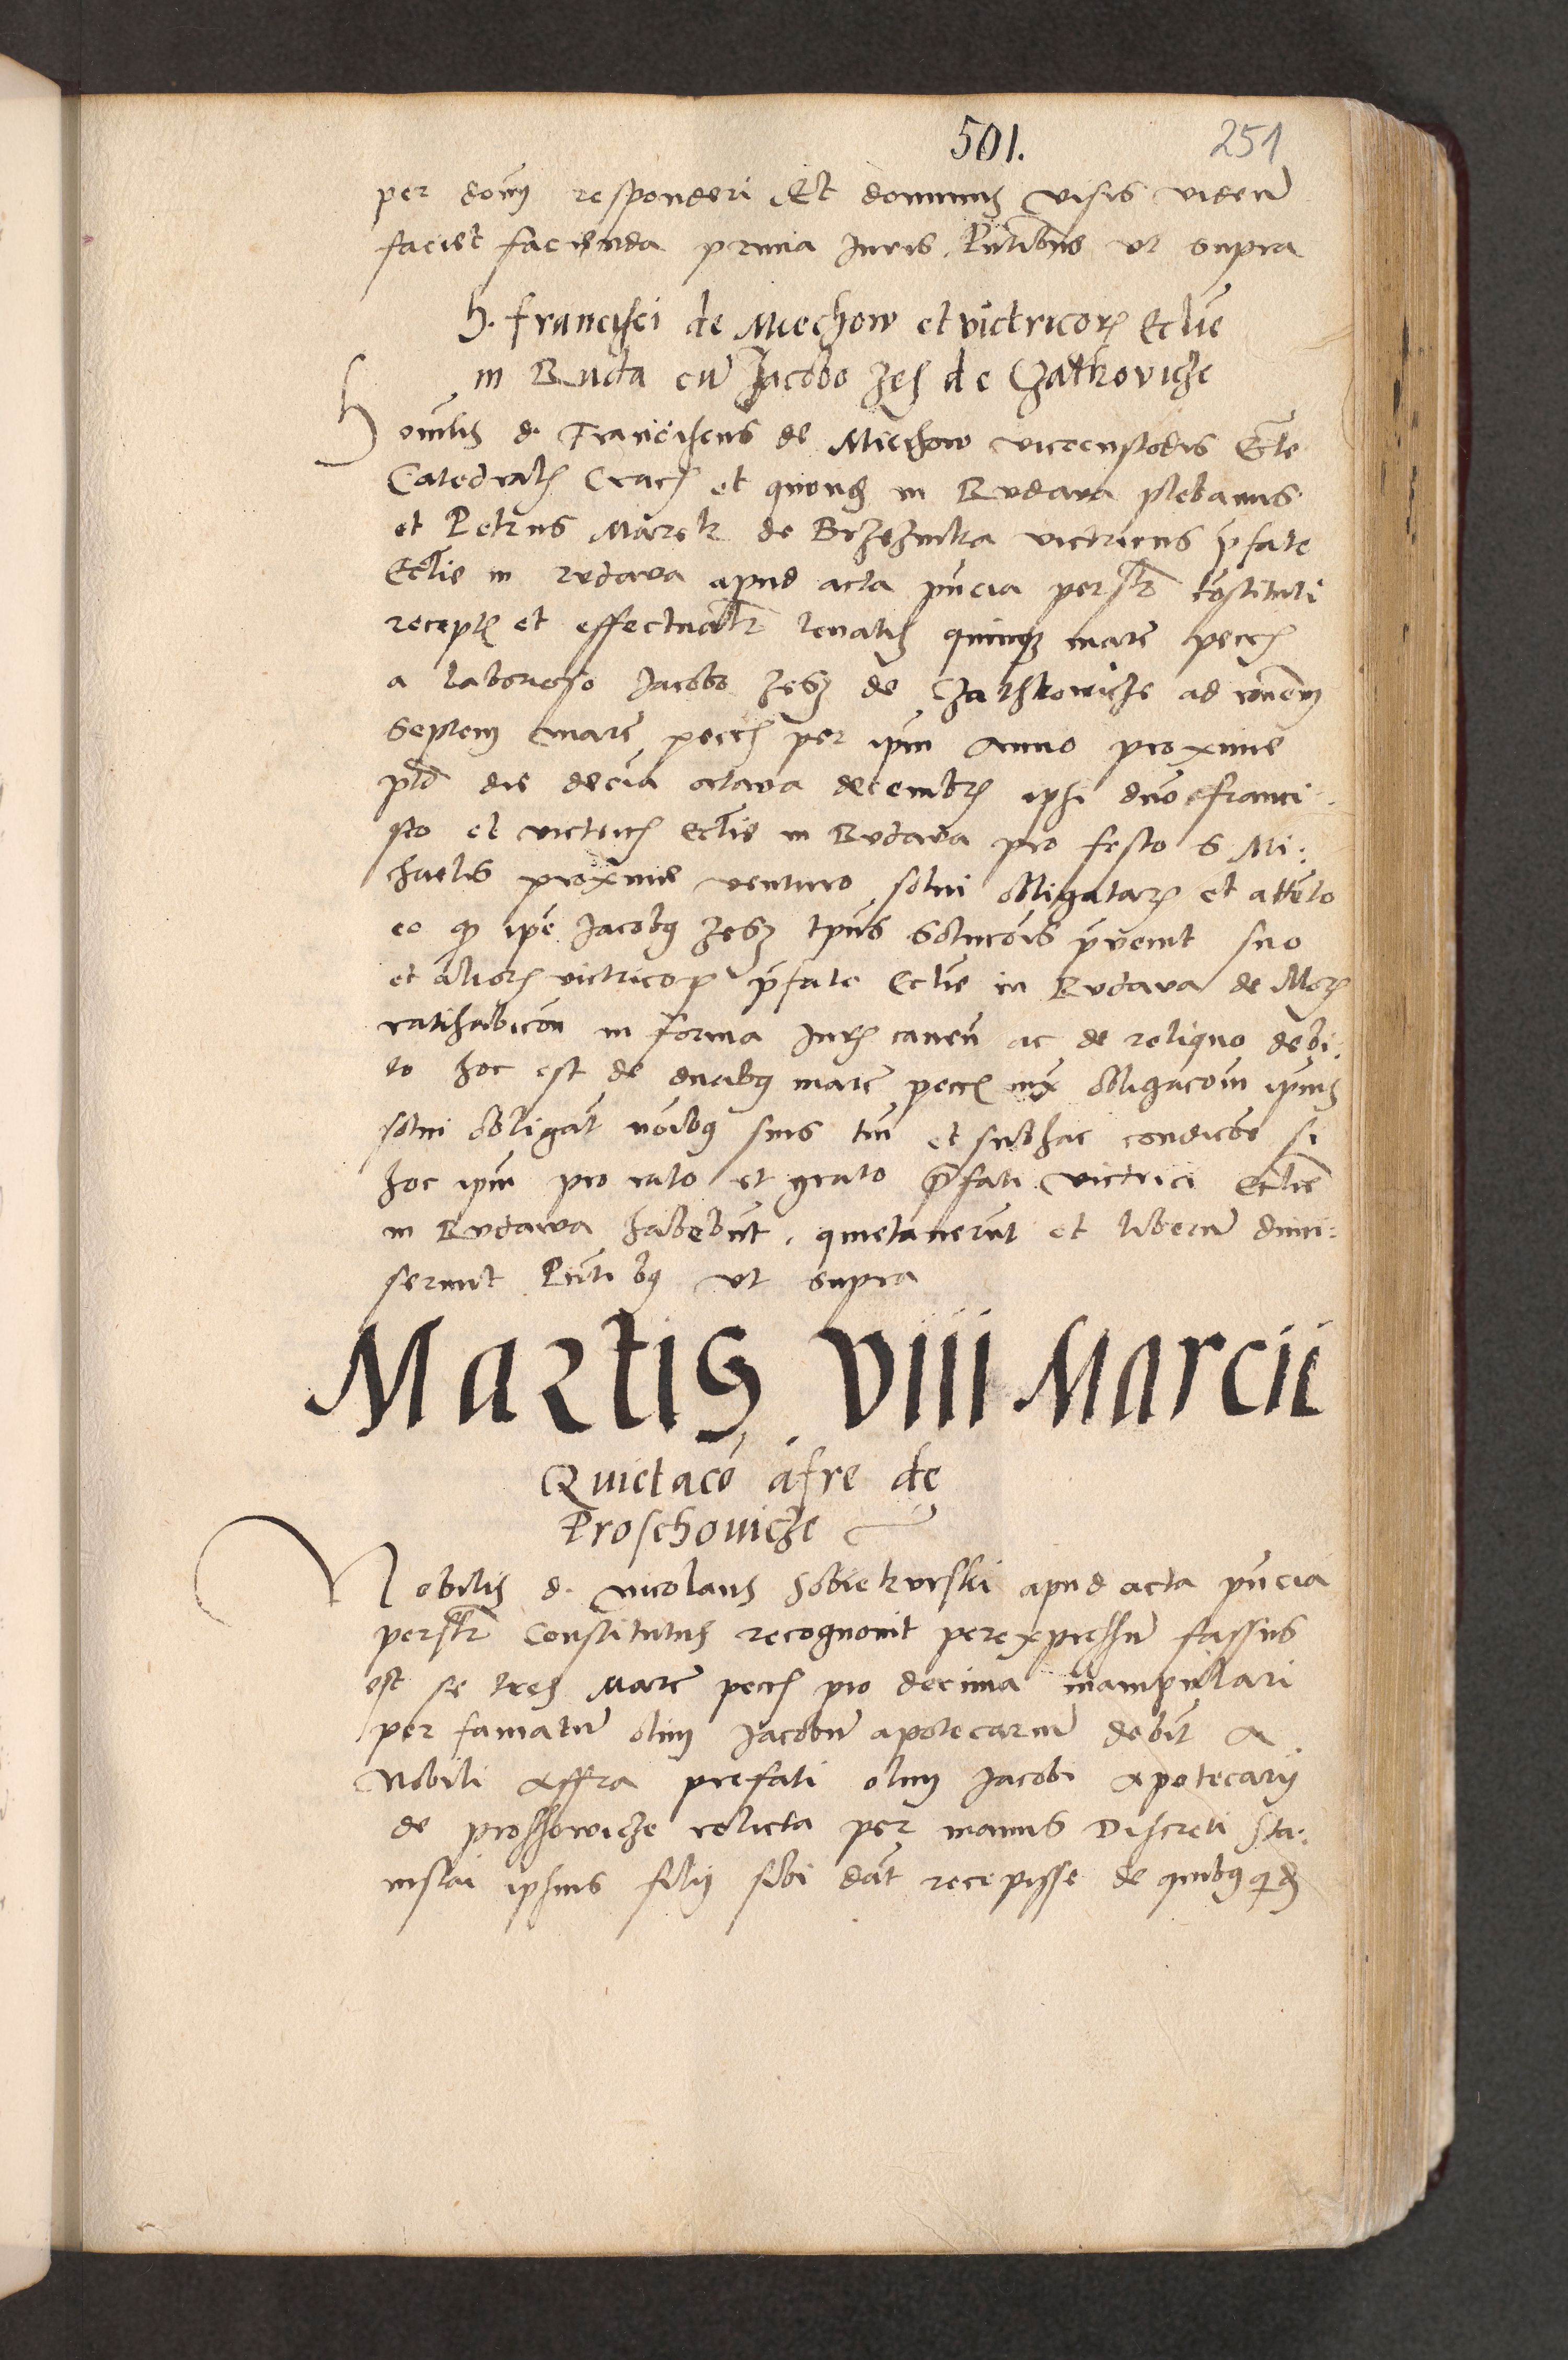 501. 251
per dom̃ responderi Et dominus visis viden̄
faciet facienda pr̃ma Iuris Pñtibus vt supra
H. francisci de Miechow et victricor̃ Eccl̃ie
in Ruda cū Jacobo Zesz de Czatkovicze
Honorabil̃ d. Franciscus de Miechow vicecustodis Eccl̃e
Catedral̃ Crac̃ et quoque in Rudava plebanus
et Petrus Marek de Brzezinka victricus p̃fate
Eccl̃ie in rudava apud acta p̃ñcia personal̃r cõstituti
recept̃ et effectual̃r levatis quinque marc̃ pecc̃
a laborioso Jacobo Zesz de Czathkovicze ad rõnem
septem marc̃ pecc̃ per ip̃m Anno proxime
p̃td̃ die decia octava decembr̃ ipsi dño Franci-
sco et victric̃ Eccl̃ie in Rudava pro festo S Mi:
chaelis proxime venturo solui obligatar̃ et attẽto
eo qp ip̃e Jacobus Zesz tp̃us solucõis p̃venit suo
et alior̃ victricor̃ p̃fate Eccl̃ie in Rudava de
ratihabicõn in forma Jur̃ caven̄ ac de reliquo debi:
to hoc est de duabus marc̃ pecc̃ iux̃ obligacõem ip̃ius
solui obligat̃ nõibus suis tm̃ et sub hac condicõe si
hoc ip̃m pro rato et grato p̃fati victrici Eccl̃ie
in Rudawa habebũt, quietaverũt et liberũ dimi:
serunt Pñtibus vt supra
Martis VIII Marcii
Quietacõ afre de
Proschovicze
Nobilis d. Nicolaus Sobiekurski apud acta p̃ñcia
personal̃r Constitutus recognovit per expressũ fassus
est se tres Marc̃ pecc̃ pro decima manipulari
per famatũ olim Jacobũ apotecariũ debit̃ a
Nobili Affra prefati olim Jacobi Apotecarij
de proschowicze relicta per manus Discreti Sta:
nislai ipsius filij sibi dat̃ recepisse de quibus